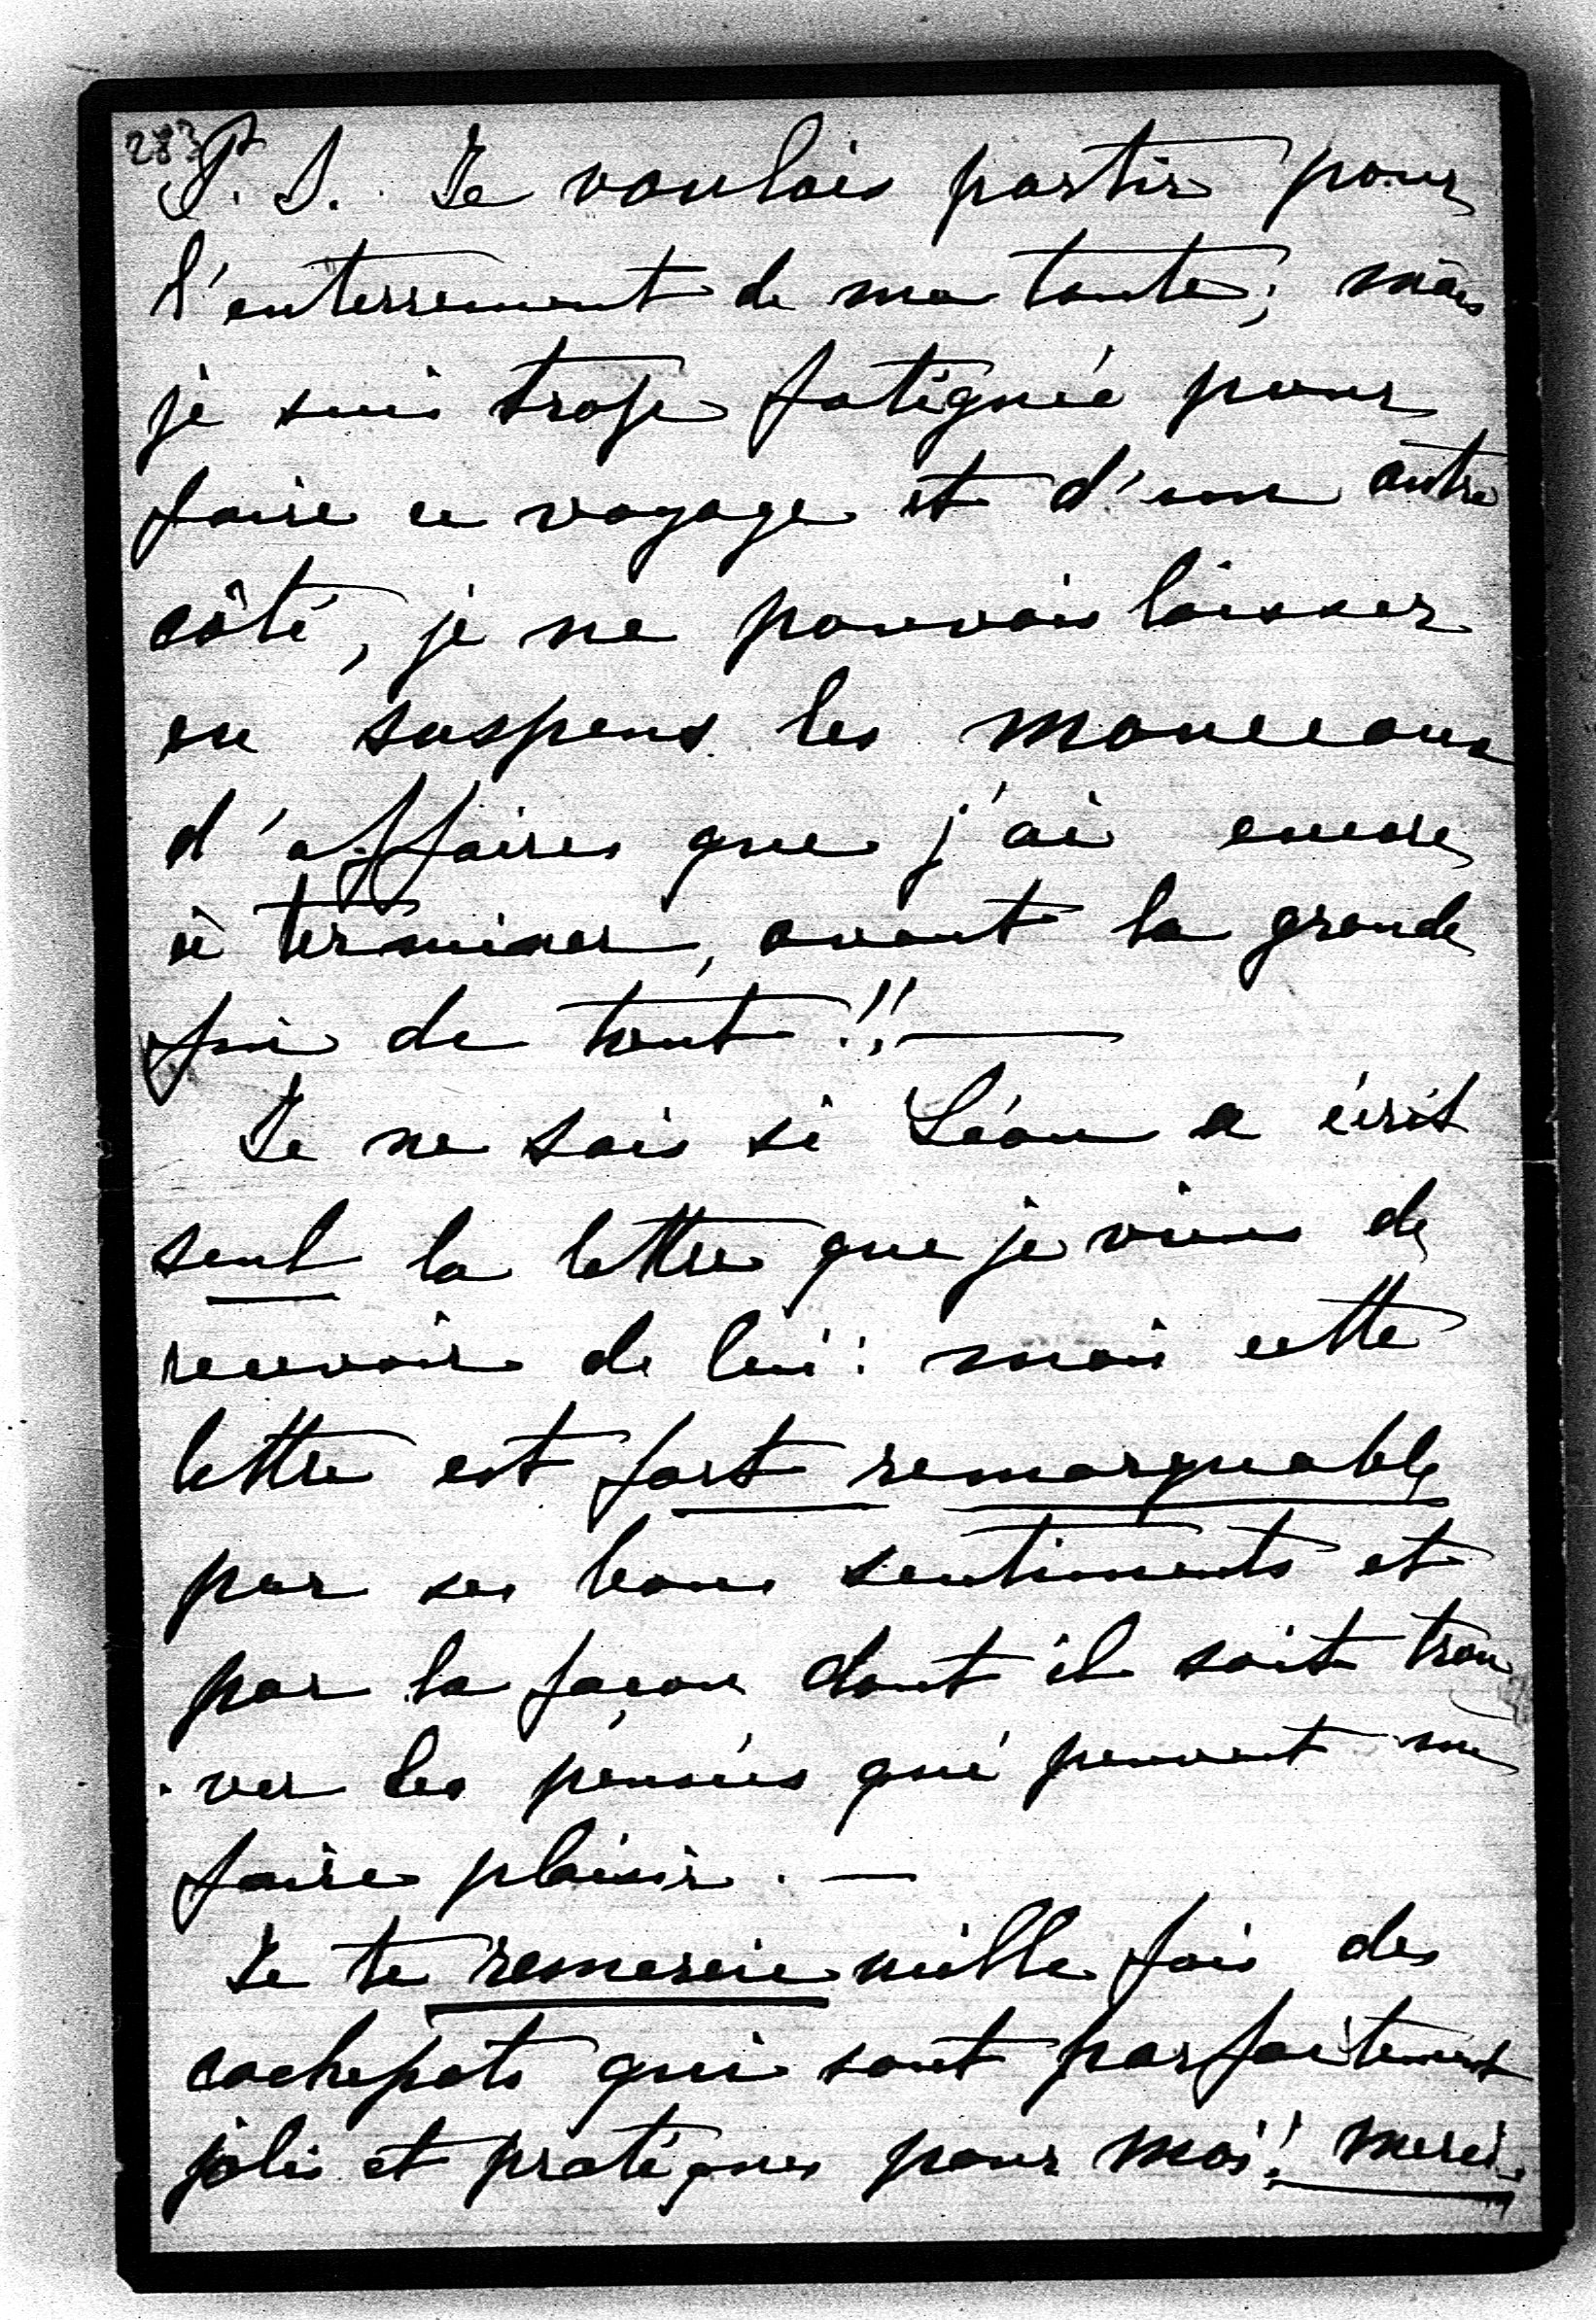 283
P. S. Je voulais partir pour
l'enterrement de ma tante; mais
je suis trop fatiguée pour
faire ce voyage et d'un autre
côté, je ne pouvais laisser
en suspens les monceaux
d'affaires que j'ai encore
à terminer, avant la grande
fin de tout!! —
Je ne sais si Léon a écrit
seul la lettre que je viens de
recevoir de lui: mais cette
lettre est fort remarquable
par ses bons sentiments et
par la façon dont il sait trou
-ver les pensées qui peuvent me
faire plaisir. —
Je te remercie mille fois des
cachepots qui sont parfaitement
jolis et pratiques pour moi! merci.